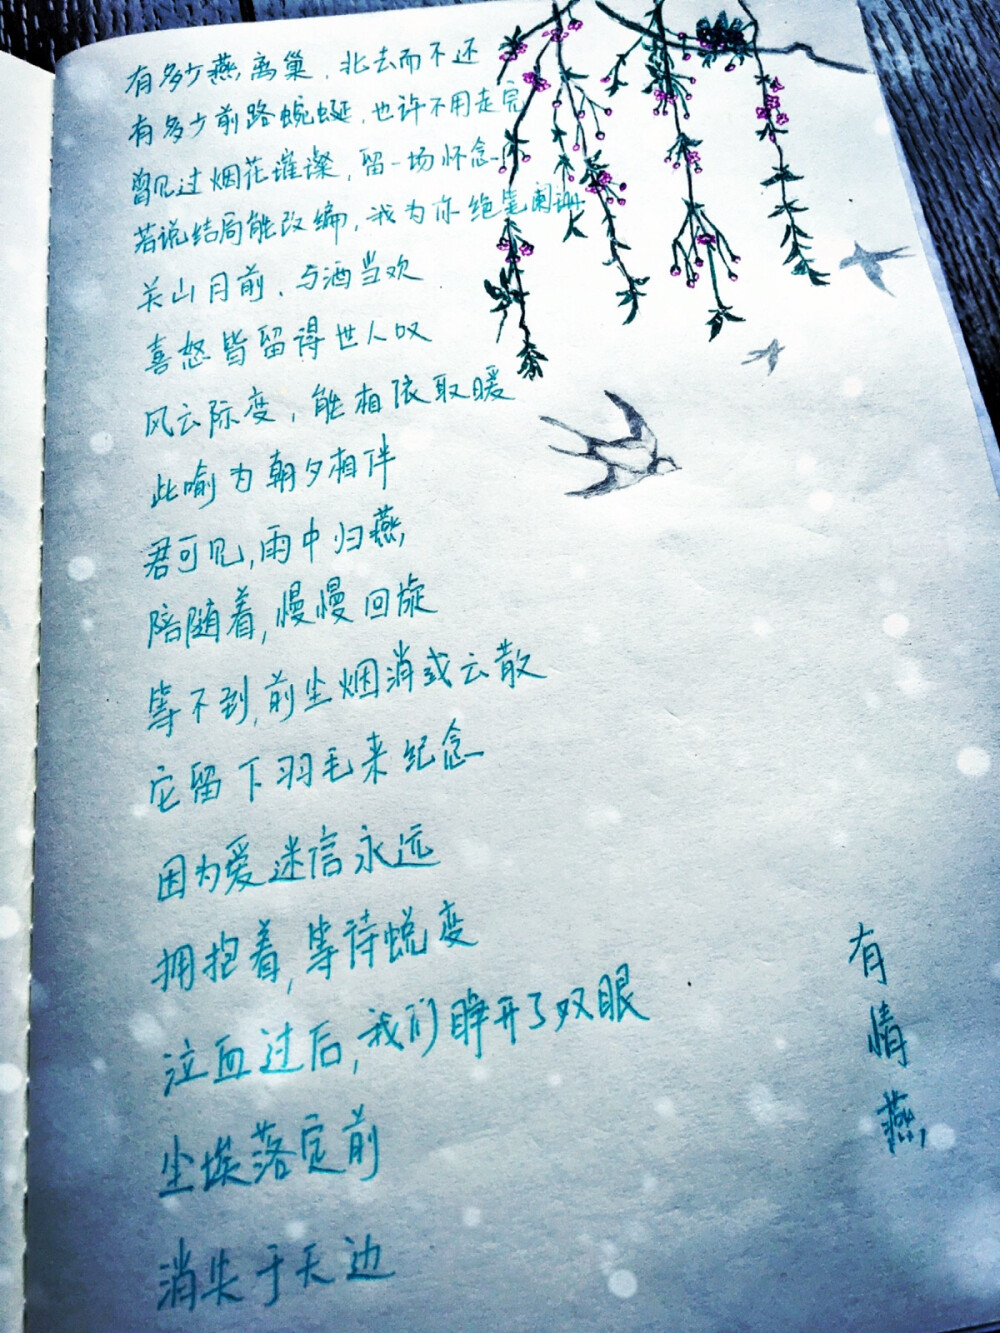 有多少燕离巢，北去而不还
有多少前路蜿蜒，也许不用走完
曾见过烟花璀璨，留一场怀念
若说结局能改编，我为你绝笔阑珊
关山月前，与酒当欢
喜怒皆留得世人叹
风云际变，能相依取暖
此喻为朝夕相伴
君可见，雨中归燕
陪随着，慢慢回旋
等不到，前尘烟消或云散
它留下羽毛来纪念
因为爱迷信永远
拥抱着，等待蜕变
泣血过后，我们睁开了双眼
尘埃落定前
消失于天边
有情燕